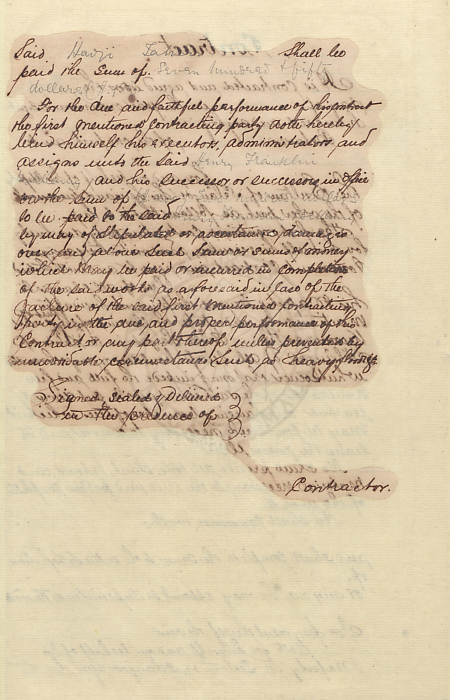 Said Hadji Tahir Shall be
paid the Sum of Seven hundred & fifty
dollars
For the due and faithful performance of this contract
the first mentioned contracting party doth hereby
bind himself his executors, administrators, and
assigns unto the Said Henry Franklin
and his Successor or successors in office
in the Sum of
to be paid to the Said
by way of Stipulated or ascertained damages
over and above Such Sum or sums of money
as may be paid or incurred in completion
of the said works as aforesaid in case of the
failure of the said first mentioned contracting
party in the due and proper performance of this
Contract or any part thereof unless prevented by
unavoidable circumstances Such as heavy
Signed, Sealed & Delivered
in the presence of
Contractor.